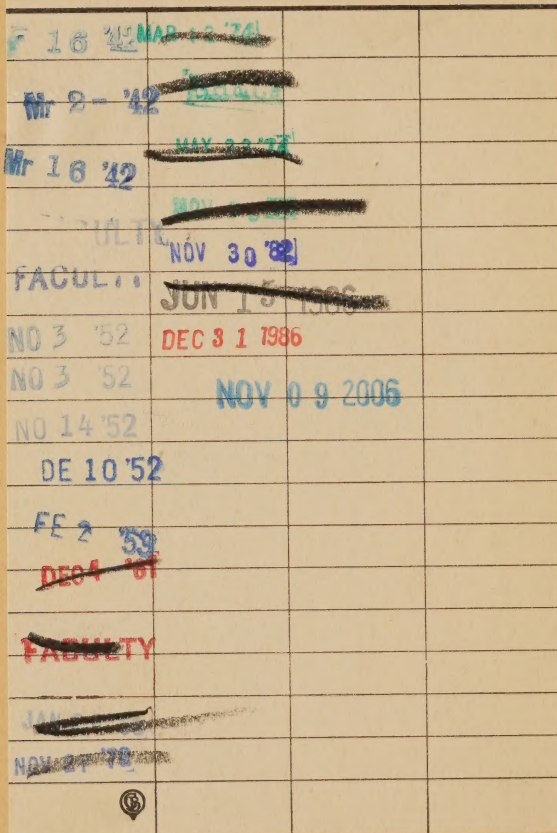 F 16 '42
Mr 2 - '42
Mr 16 '42
FACUL
NO 3 '52
NO 3 '52
NO 14 '52
DE 10 '52
FE 2 '53
DEC 4 '61
FACULTY
JAN
NOV 21 '78
MAR '74
MAY 23 '74
NOV
NOV 30 '82
JUN 15 1986
DEC 31 1986
NOV 09 2006